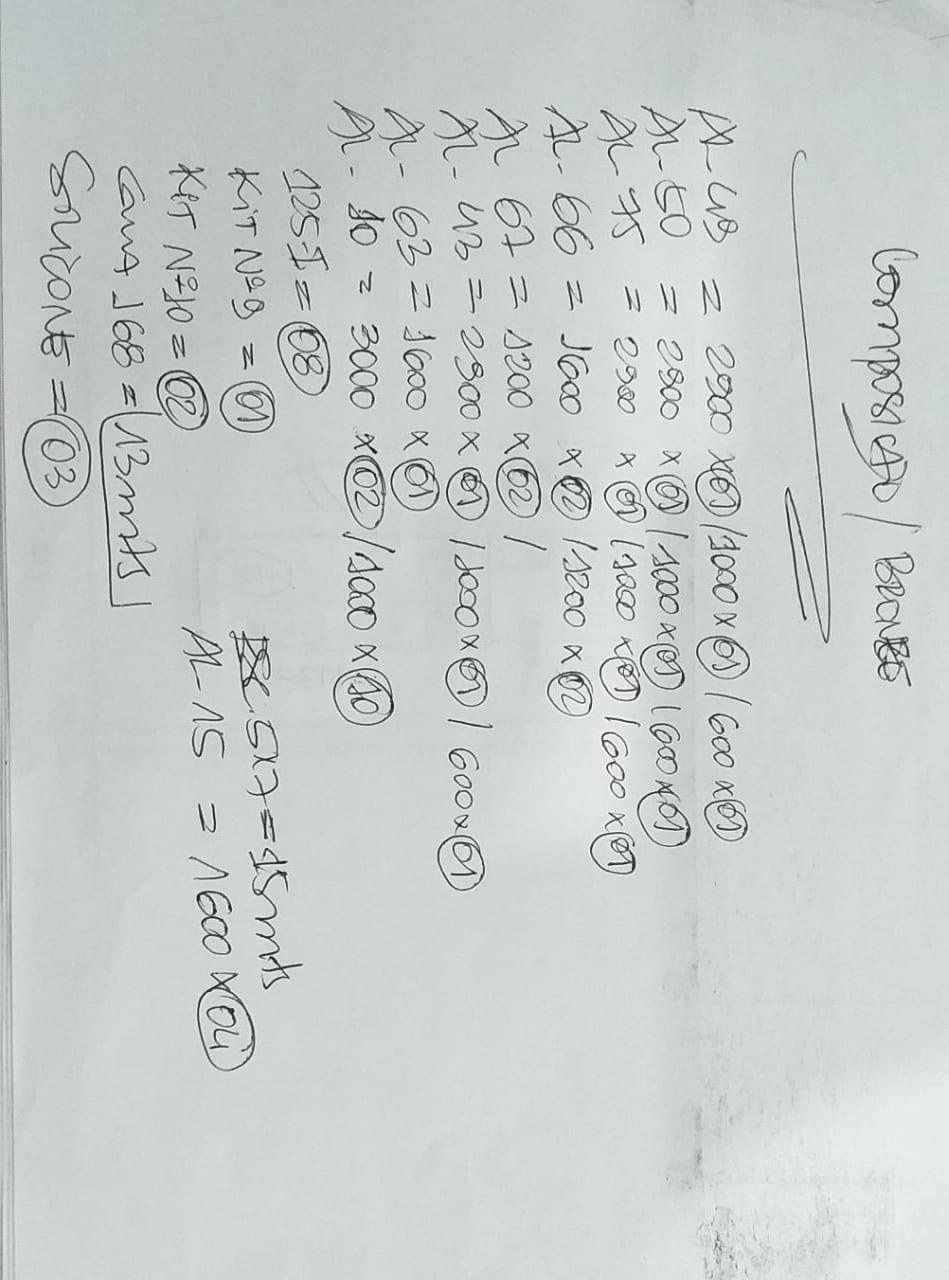 Composição /
AL-48 = 2900 x 01 / 1000 x 01 / 600 x 01
AL-50 = 2900 x 01 / 1000 x 01 / 600 x 01
AL-75 = 2900 x 01 / 1000 x 01 / 600 x 01
AL-66 = 1600 x 02 / 1200 x 02
AL 67 = 1200 x 02 /
AL-43 = 2900 x 01 / 1000 x 01 / 600 x 01
AL-63 = 1600 x 01
AL-10 = 3000 x 02 / 1000 x 10
125-I = 08
KIT Nº 9 = 01
5x7 = 15 mts
KIT Nº 10 = 02
AL-15 = 1600 x 04
168 = 13 mts
Silicone = 03